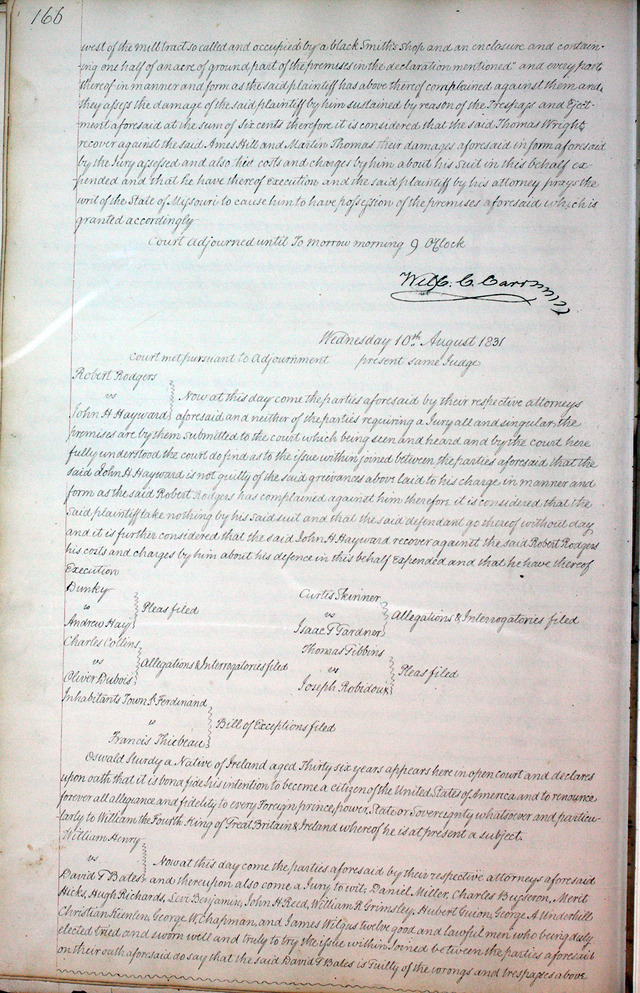 166
west of the mill tract so called and occupied by a black Smith's Shop and an enclosure and contain-
ing one half of an acre of ground part of the premises in the declaration mentioned" and every part
thereof in manner and form as the said plaintiff has above thereof complained against them and
they assess the damage of the said plaintiff by him sustained by reason of the Trespass and Eject-
ment aforesaid at the sum of Six cents therefore it is considered that the said Thomas Wright
recover against the said Ames Hill and Martin Thomas their damages aforesaid in form aforesaid
by the Jury assessed and also his costs and charges by him about his Suit in this behalf ex-
pended and that he have thereof execution and the said plaintiff by his attorney prays the
writ of the State of Missouri to cause him to have possession of the premises aforesaid which is
granted accordingly
Court Adjourned until To morrow morning 9 O'Clock
Will. C. Carr
Wednesday 10th August 1831
Court met pursuant to Adjournment present same Judge
Robert Rodgers
vs
John H Hayward
Now at this day come the parties aforesaid by their respective attorneys
aforesaid and neither of the parties requiring a Jury all and singular the
premises are by them submitted to the court which being seen and heard and by the court here
fully understood the court do find as to the issue within joined between the parties aforesaid that the
said John H. Hayward is not guilty of the said grievances above laid to his charge in manner and
form as the said Robert Rodgers has complained against him therefore it is considered that the
said plaintiff take nothing by his said suit and that the said defendant go thereof without day
and it is further considered that the said John H. Hayward recover against the said Robert Rodgers
his costs and charges by him about his defence in this behalf Expended and that he have thereof
Execution
Dunky
vs
Andrew Hay
Pleas filed
Curtis Skinner
vs
Isaac T Gardner
Allegations & Interrogatories filed
Charles Collins
vs
Oliver Dubois
Allegations & Interrogatories filed
Thomas Tibbins
vs
Joseph Robidoux
Pleas filed
Inhabitants Town St Ferdinand
vs
Francis Thiebeau
Bill of Exceptions filed
Oswald Sturdy a Native of Ireland aged Thirty six years appears here in open court and declares
upon oath that it is bona fide his intention to become a citizen of the United States of America and to renounce
forever all allegiance and fidelity to every Foreign prince, power, State or Sovereignty whatsoever and particu-
larly to William the Fourth King of Great Britain & Ireland whereof he is at present a subject.
William Henry
vs
David T Bates
Now at this day come the parties aforesaid by their respective attorneys aforesaid
and thereupon also come a Jury to wit; Daniel Miller, Charles Busseron, Merit
Hicks, Hugh Richards, Levi Benjamin, John H Reed, William R Grimsley, Hubert Guion, George A Underhill
Christian Kienlen, George W. Chapman, and James Wilgus twelve good and lawful men who being duly
elected tried and sworn well and truly to try the issue within Joined between the parties aforesaid
on their oath aforesaid do say that the said David T Bates is Guilty of the wrongs and trespasses above